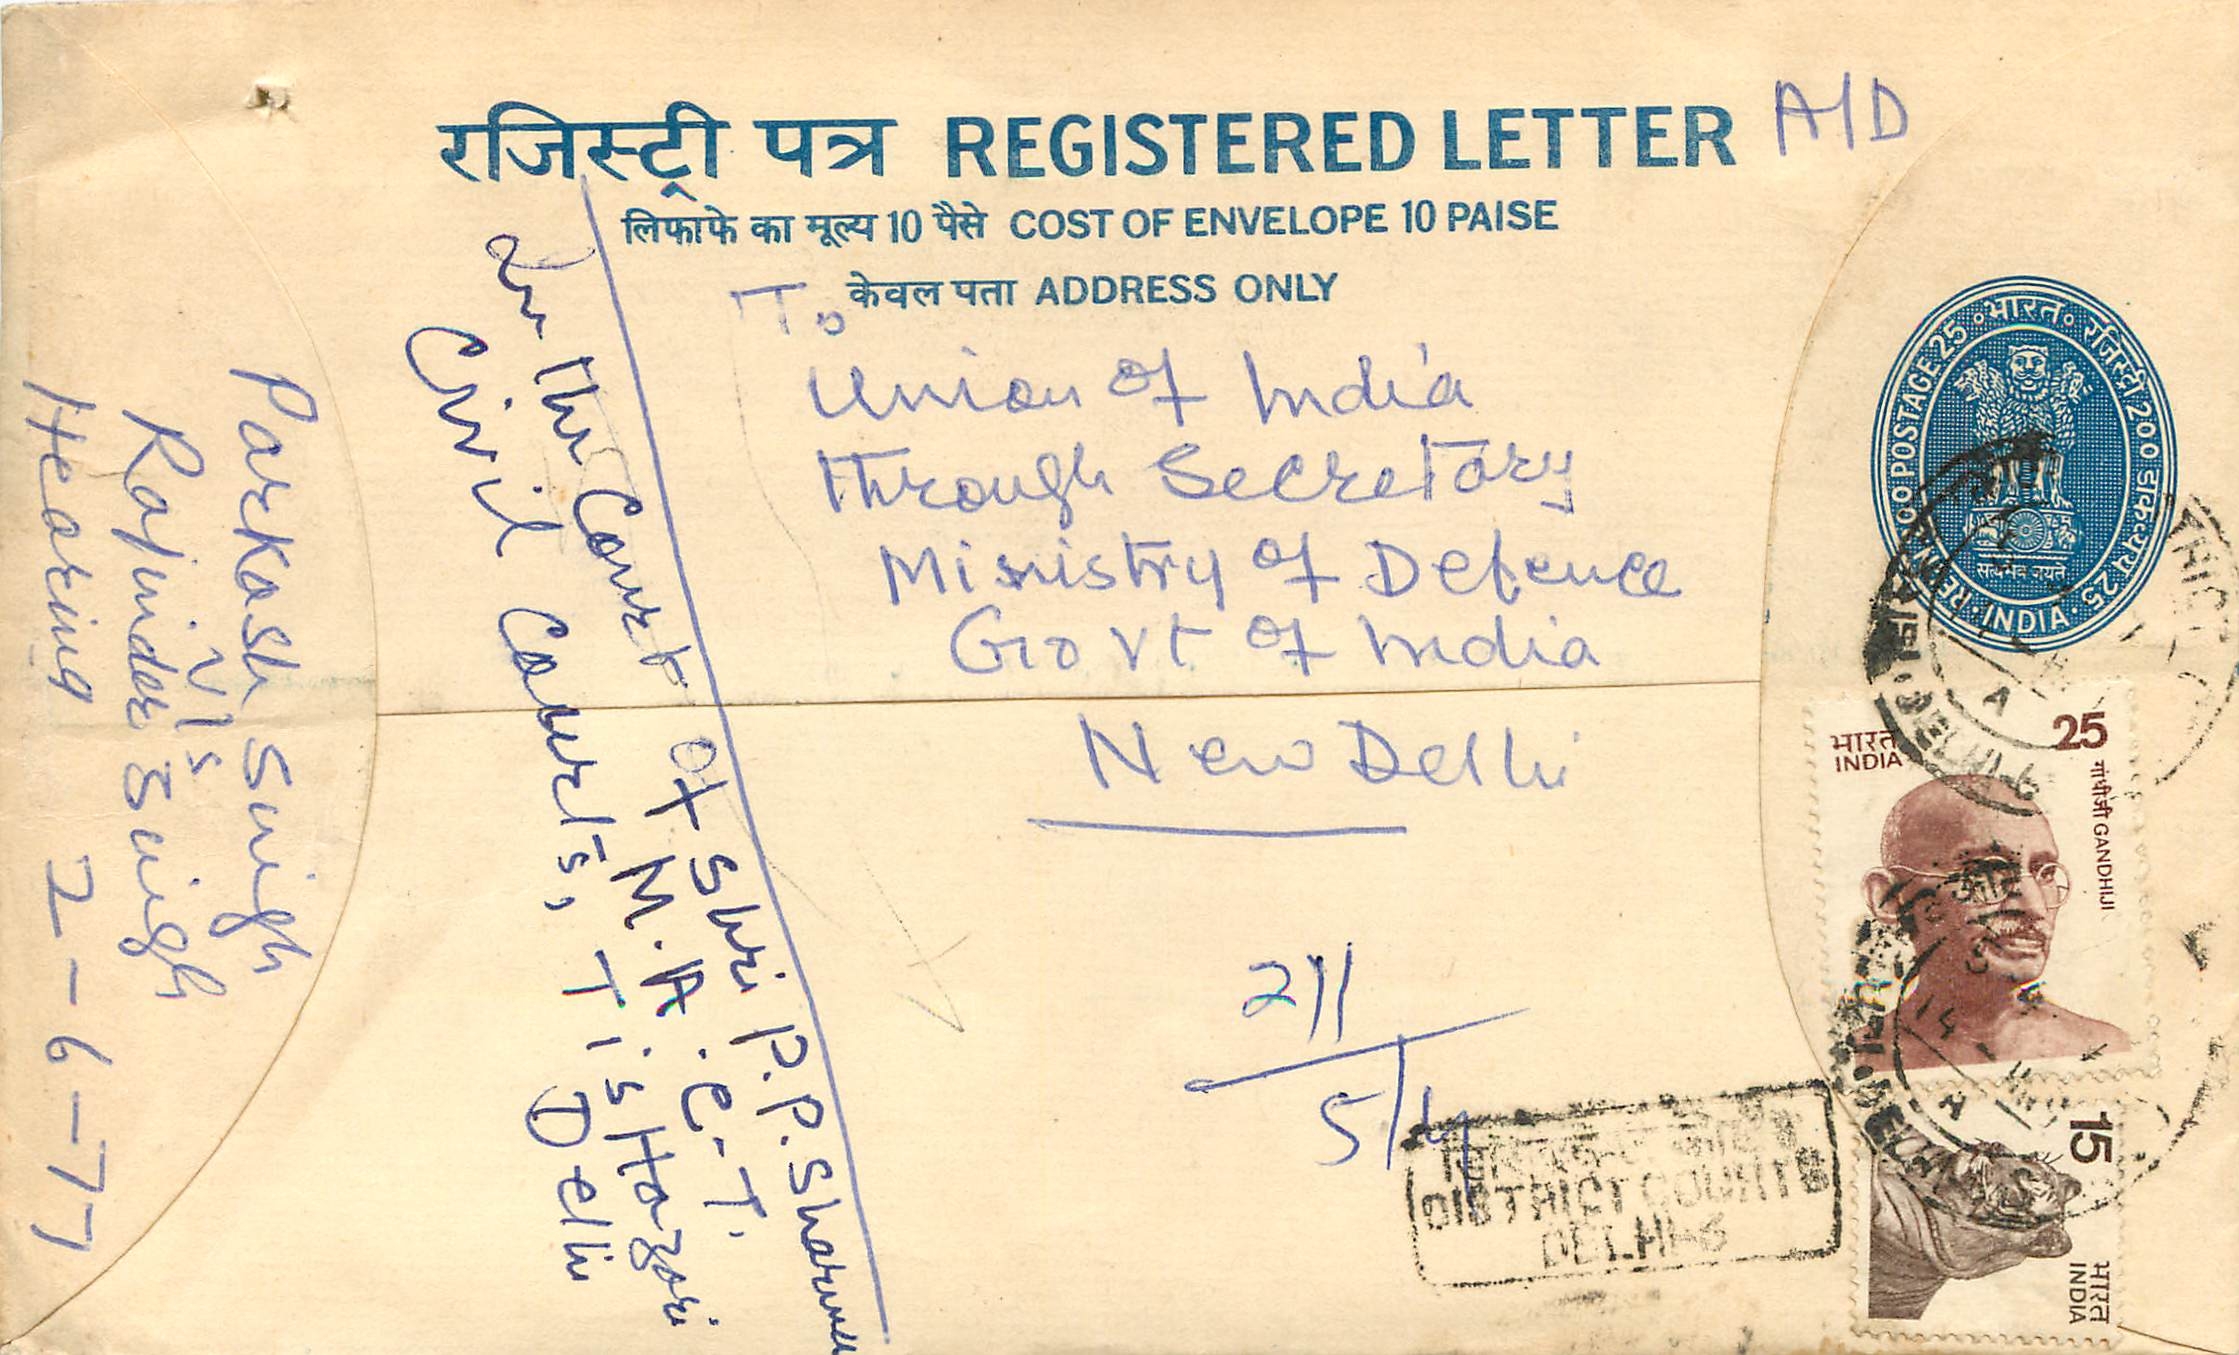 रजिस्ट्री पत्र REGISTERED LETTER A/D
लिफाफे का मूल्य 10 पैसे COST OF ENVELOPE 10 PAISE
केवल पता ADDRESS ONLY
To
Union of India
Through Secretary
Ministry of Defence
Govt of India
New Delhi
211
5/4
In the Court of Shri P.P. Sharma
M.A.C.T.
Civil Courts, Tis Hazari
Delhi
Parkash Singh
V/s
Rajinder Singh
Hearing 2-6-77
भारत रजिस्ट्री 200 डाकव्यय 25
INDIA REGN 200 POSTAGE 25
सत्यमेव जयते
भारत
INDIA
25
गांधीजी GANDHIJI
15
भारत
INDIA
DISTRICT COURTS
DELHI-6
DELHI-6